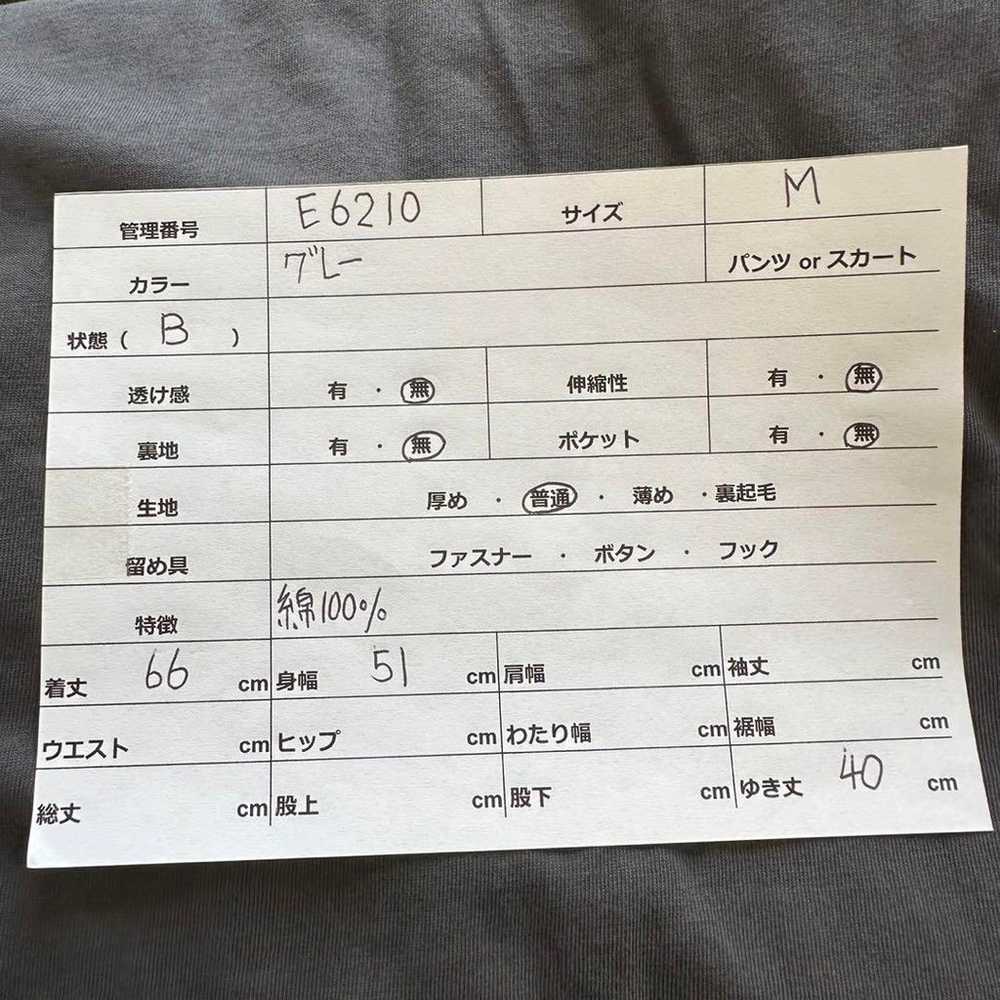 管理番号 E6210 サイズ M
カラー グレー パンツ or スカート
状態 ( B )
透け感 有 ・ 無 伸縮性 有 ・ 無
裏地 有 ・ 無 ポケット 有 ・ 無
生地 厚め ・ 普通 ・ 薄め ・裏起毛
留め具 ファスナー ・ ボタン ・ フック
特徴 綿100%
着丈 66 cm 身幅 51 cm 肩幅 cm 袖丈 cm
ウエスト cm ヒップ cm わたり幅 cm 裾幅 cm
総丈 cm 股上 cm 股下 cm ゆき丈 40 cm